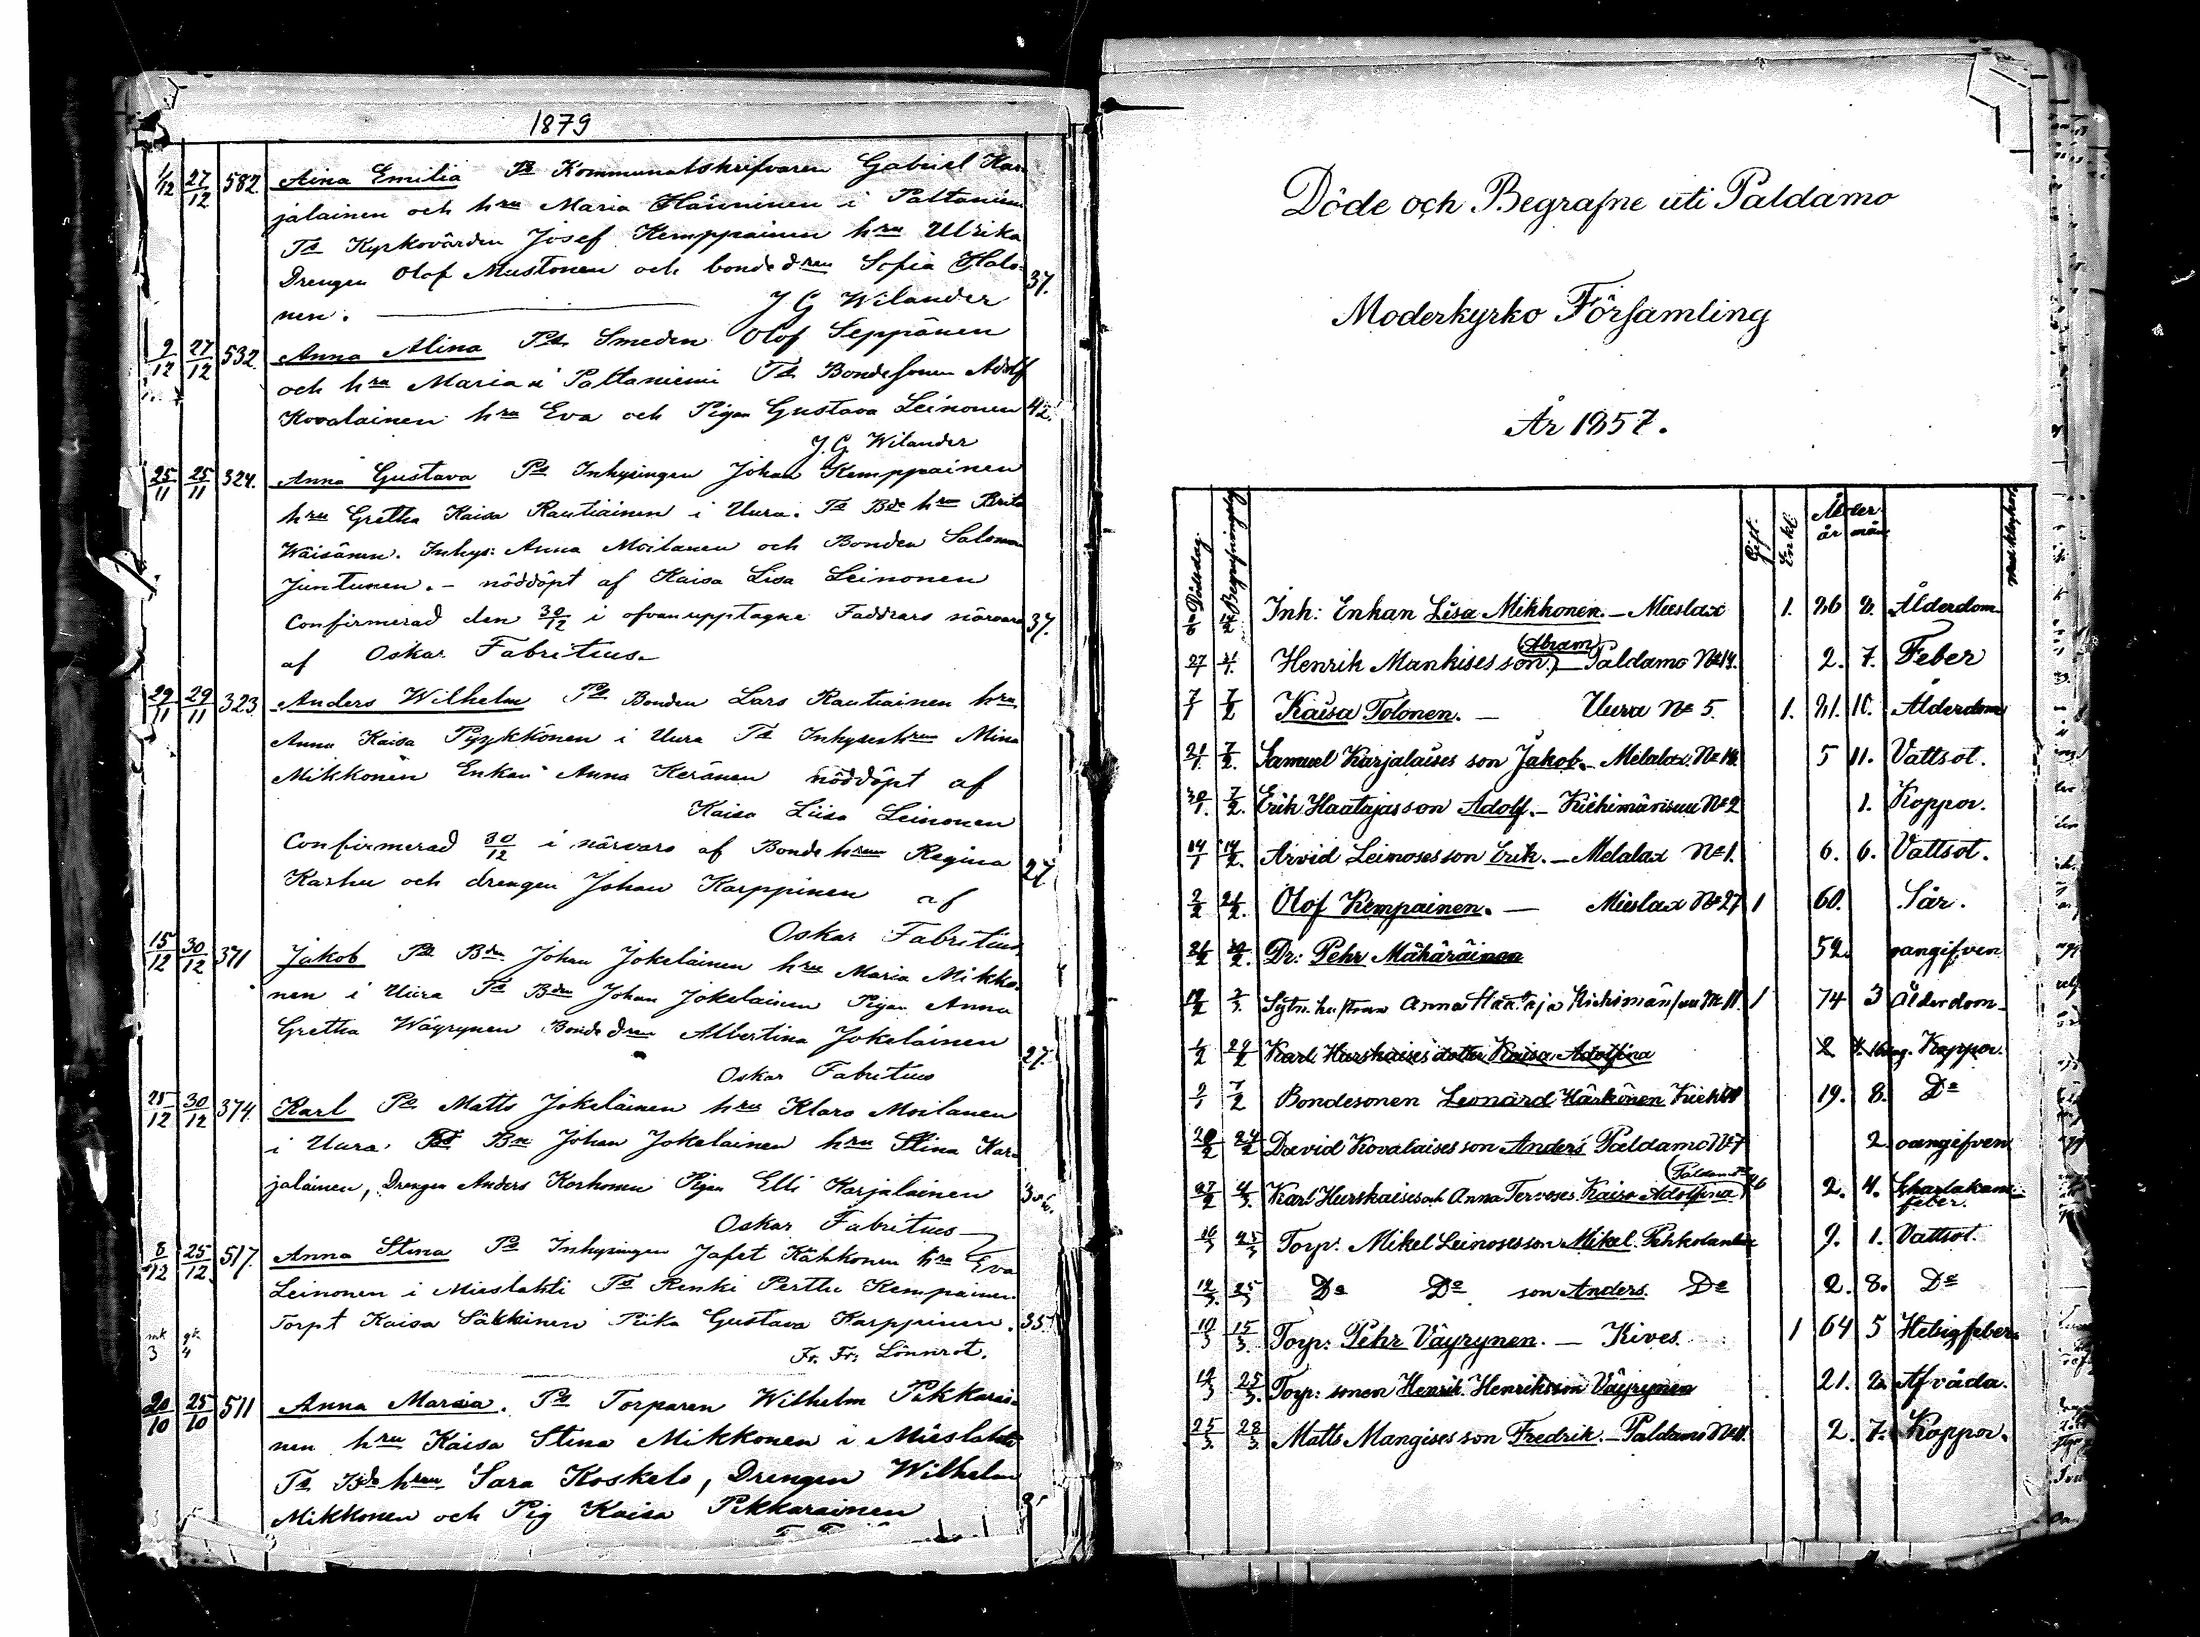 1879
1/12 27/12 582. Aina Emilia Pr Kommunalskrifvaren Gabriel Kar-
jalainen och hru Maria Hänninen i Paltaniem
Ts Kyrkovärden Josef Kemppainen hru Ulrika
Drengen Olof Mustonen och bonde dren Sofia Halo- 37.
nen. J G Wilander
9/12 27/12 532. Anna Alina Prs Smeden Olof Seppänen
och hru Maria i Paltaniemi Ts Bondesonen Adolf
Kovalainen hru Eva och Pigan Gustava Leinonen 42.
J. G Wilander
25/11 25/11 324. Anna Gustava Prs Inhysingen Johan Kemppainen
hru Gretha Kaisa Rautiainen i Uura. Ts Bde hru Brita
Wäisänen. Inhys: Anna Moilanen och Bonden Salomon
Juntunen. – nöddöpt af Kaisa Lisa Leinonen
Confirmerad den 30/12 i ofvanupptagne Faddrars närvaro 37.
af Oskar Fabritius
29/11 29/11 323. Anders Wilhelm Prs Bonden Lars Rautiainen hru
Anna Kaisa Pyykkönen i Uura Ts Inhyses hrun Mina
Mikkonen Enkan Anna Keränen nöddöpt af
Kaisa Liisa Leinonen
Confirmerad 30/12 i närvaro af Bonde hrun Regina
Karhu och drengen Johan Karppinen af 27.
Oskar Fabritius
15/12 30/12 371 Jakob Prs Bdn Johan Jokelainen hru Maria Mikko-
nen i Uura Ts Bdn Johan Jokelainen Pigan Anna
Gretha Wäyrynen Bonde dren Albertina Jokelainen 27.
Oskar Fabritius
25/12 30/12 374. Karl Prs Matts Jokelainen hru Klara Moilanen
i Uura. Ts Bn Johan Jokelainen hru Stina Kar-
jalainen, Drengen Anders Korhonen Pigan Elli Karjalainen
Oskar Fabritius
8/12 25/12 517. Anna Stina Prs Inhysingen Jafet Kähkönen hru Eva
Leinonen i Mieslahti Ts Renki Perttu Kempainen
Torpt Kaisa Säkkinen Piika Gustava Karppinen. 35.
Fr. Fr. Lönnrot.
20/10 25/10 511 Anna Maria. Prs Torparen Wilhelm Pikkarai-
nen hru Kaisa Stina Mikkonen i Mieslahti
Ts Bde hrun Sara Koskelo, Drengen Wilhelm
Mikkonen och Pig Kaisa Pikkarainen
Döde och Begrafne uti Paldamo
Moderkyrko Församling
År 1857.
Dödsdag. Begrafningsdag Gift. Enkl. Ålder. år mån
Inh: Enkan Lisa Mikkonen. – Mieslax 1. 86 2. Ålderdom
Henrik Mankises son (Abram) – Paldamo No 14. 2. 7. Feber
7/1 7/2 Kaisa Tolonen. – Uura No 5. 1. 81. 10. Ålderdom
21/1 7/2. Samuel Karjalaises son Jakob. – Melalax No 14. 5 11. Vattsot.
30/1. 7/2. Erik Haatajas son Adolf. – Kiehimänsuu No 2 1. Koppor.
14/1 14/2. Arvid Leinoses son Erik. – Melalax No 1. 6. 6. Vattsot.
2/2 21/2. Olof Kempainen. – Mieslax No 27 1 60. Sår.
Dr: Pehr Mähäräinen 52. oangifven
Anna Haataja Kiehimänsuu No 11. 1 74 3 Ålderdom
1/2 22/2 Karl Hurskaises dotter Kaisa Adolfina 2 Koppor.
2/1 7/2 Bondesonen Leonard Härkönen 19. 8. Do
20/2 24/2 David Kovalaises son Anders Paldamo No 7 2 oangifven
27/2 4/3. Karl Hurskaises och Anna Tervoses Kaisa Adolfina (Paldamo 2. 4. Skarlakans-
feber.
10/3 25/3 Torp. Mikel Leinoses son Mikel. 9. 1. Vattsot.
12/3. 25/3 Do Do son Anders. Do 2. 8. Do
10/3 15/3. Torp: Pehr Väyrynen. – Kives. 1 64 5 Hetsigfeber
12/3 25/3. Torp: sonen Henrik Henriksson Väyrynen 21. 2. Af våda.
25/3. 28/3 Matts Mangises son Fredrik. – Paldamo No 11. 2. 7. Koppor.